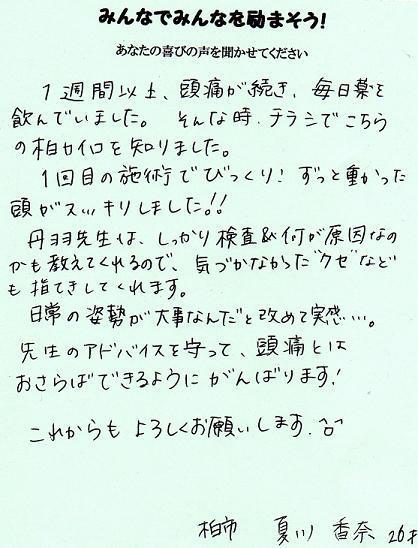 みんなでみんなを励まそう!
あなたの喜びの声を聞かせてください
1週間以上、頭痛が続き、毎日薬を
飲んでいました。そんな時、チラシでこちら
の柏カイロを知りました。
1回目の施術でびっくり!ずっと重かった
頭がス...キリしました!!
丹羽先生は、しっかり検査&何が原因なの
かも教えてくれるので、気づかなかった"クセ"など
も指てきしてくれます。
日常の姿勢が大事なんだと改めて実感...。
先生のアドバイスを守って、頭痛とは
おさらばできるようにがんばります!
これからもよろしくお願いします。
柏市 夏川 香奈 26才